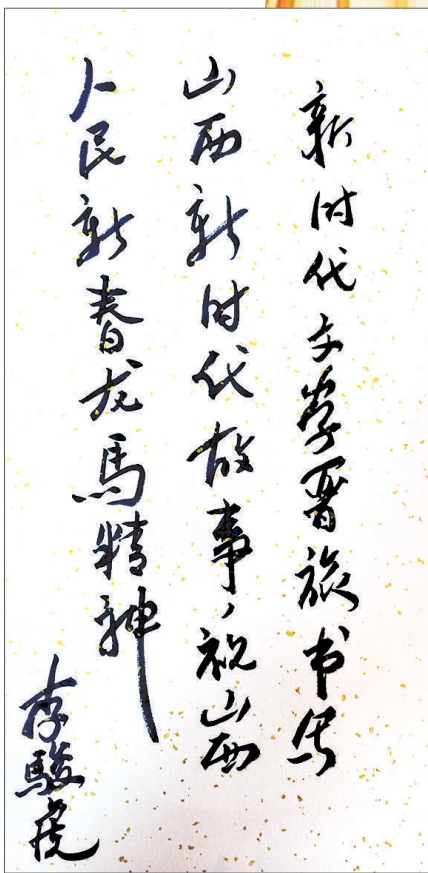 新时代文学晋旅书写
山西新时代故事，祝山西
人民新春龙馬精神
李駿虎